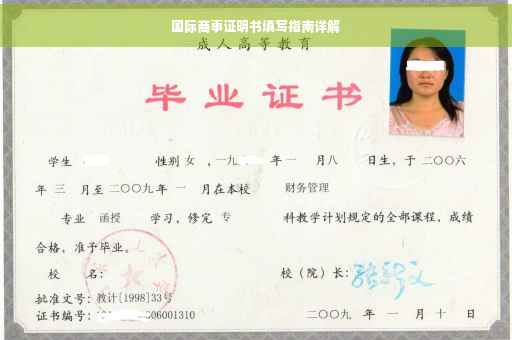 国际商事证明书填写指南详解
成人高等教育
毕业证书
学生 性别 女 ，一九 年一 月八 日生，于二〇〇六
年 三 月至二〇〇九年 一 月在本校 财务管理
专业 函授 学习，修完 专 科教学计划规定的全部课程，成绩
合格，准予毕业。
校 名： 校（院）长：
批准文号：教计[1998]33号
证书编号： 06001310 二〇〇九 年 一 月 十 日